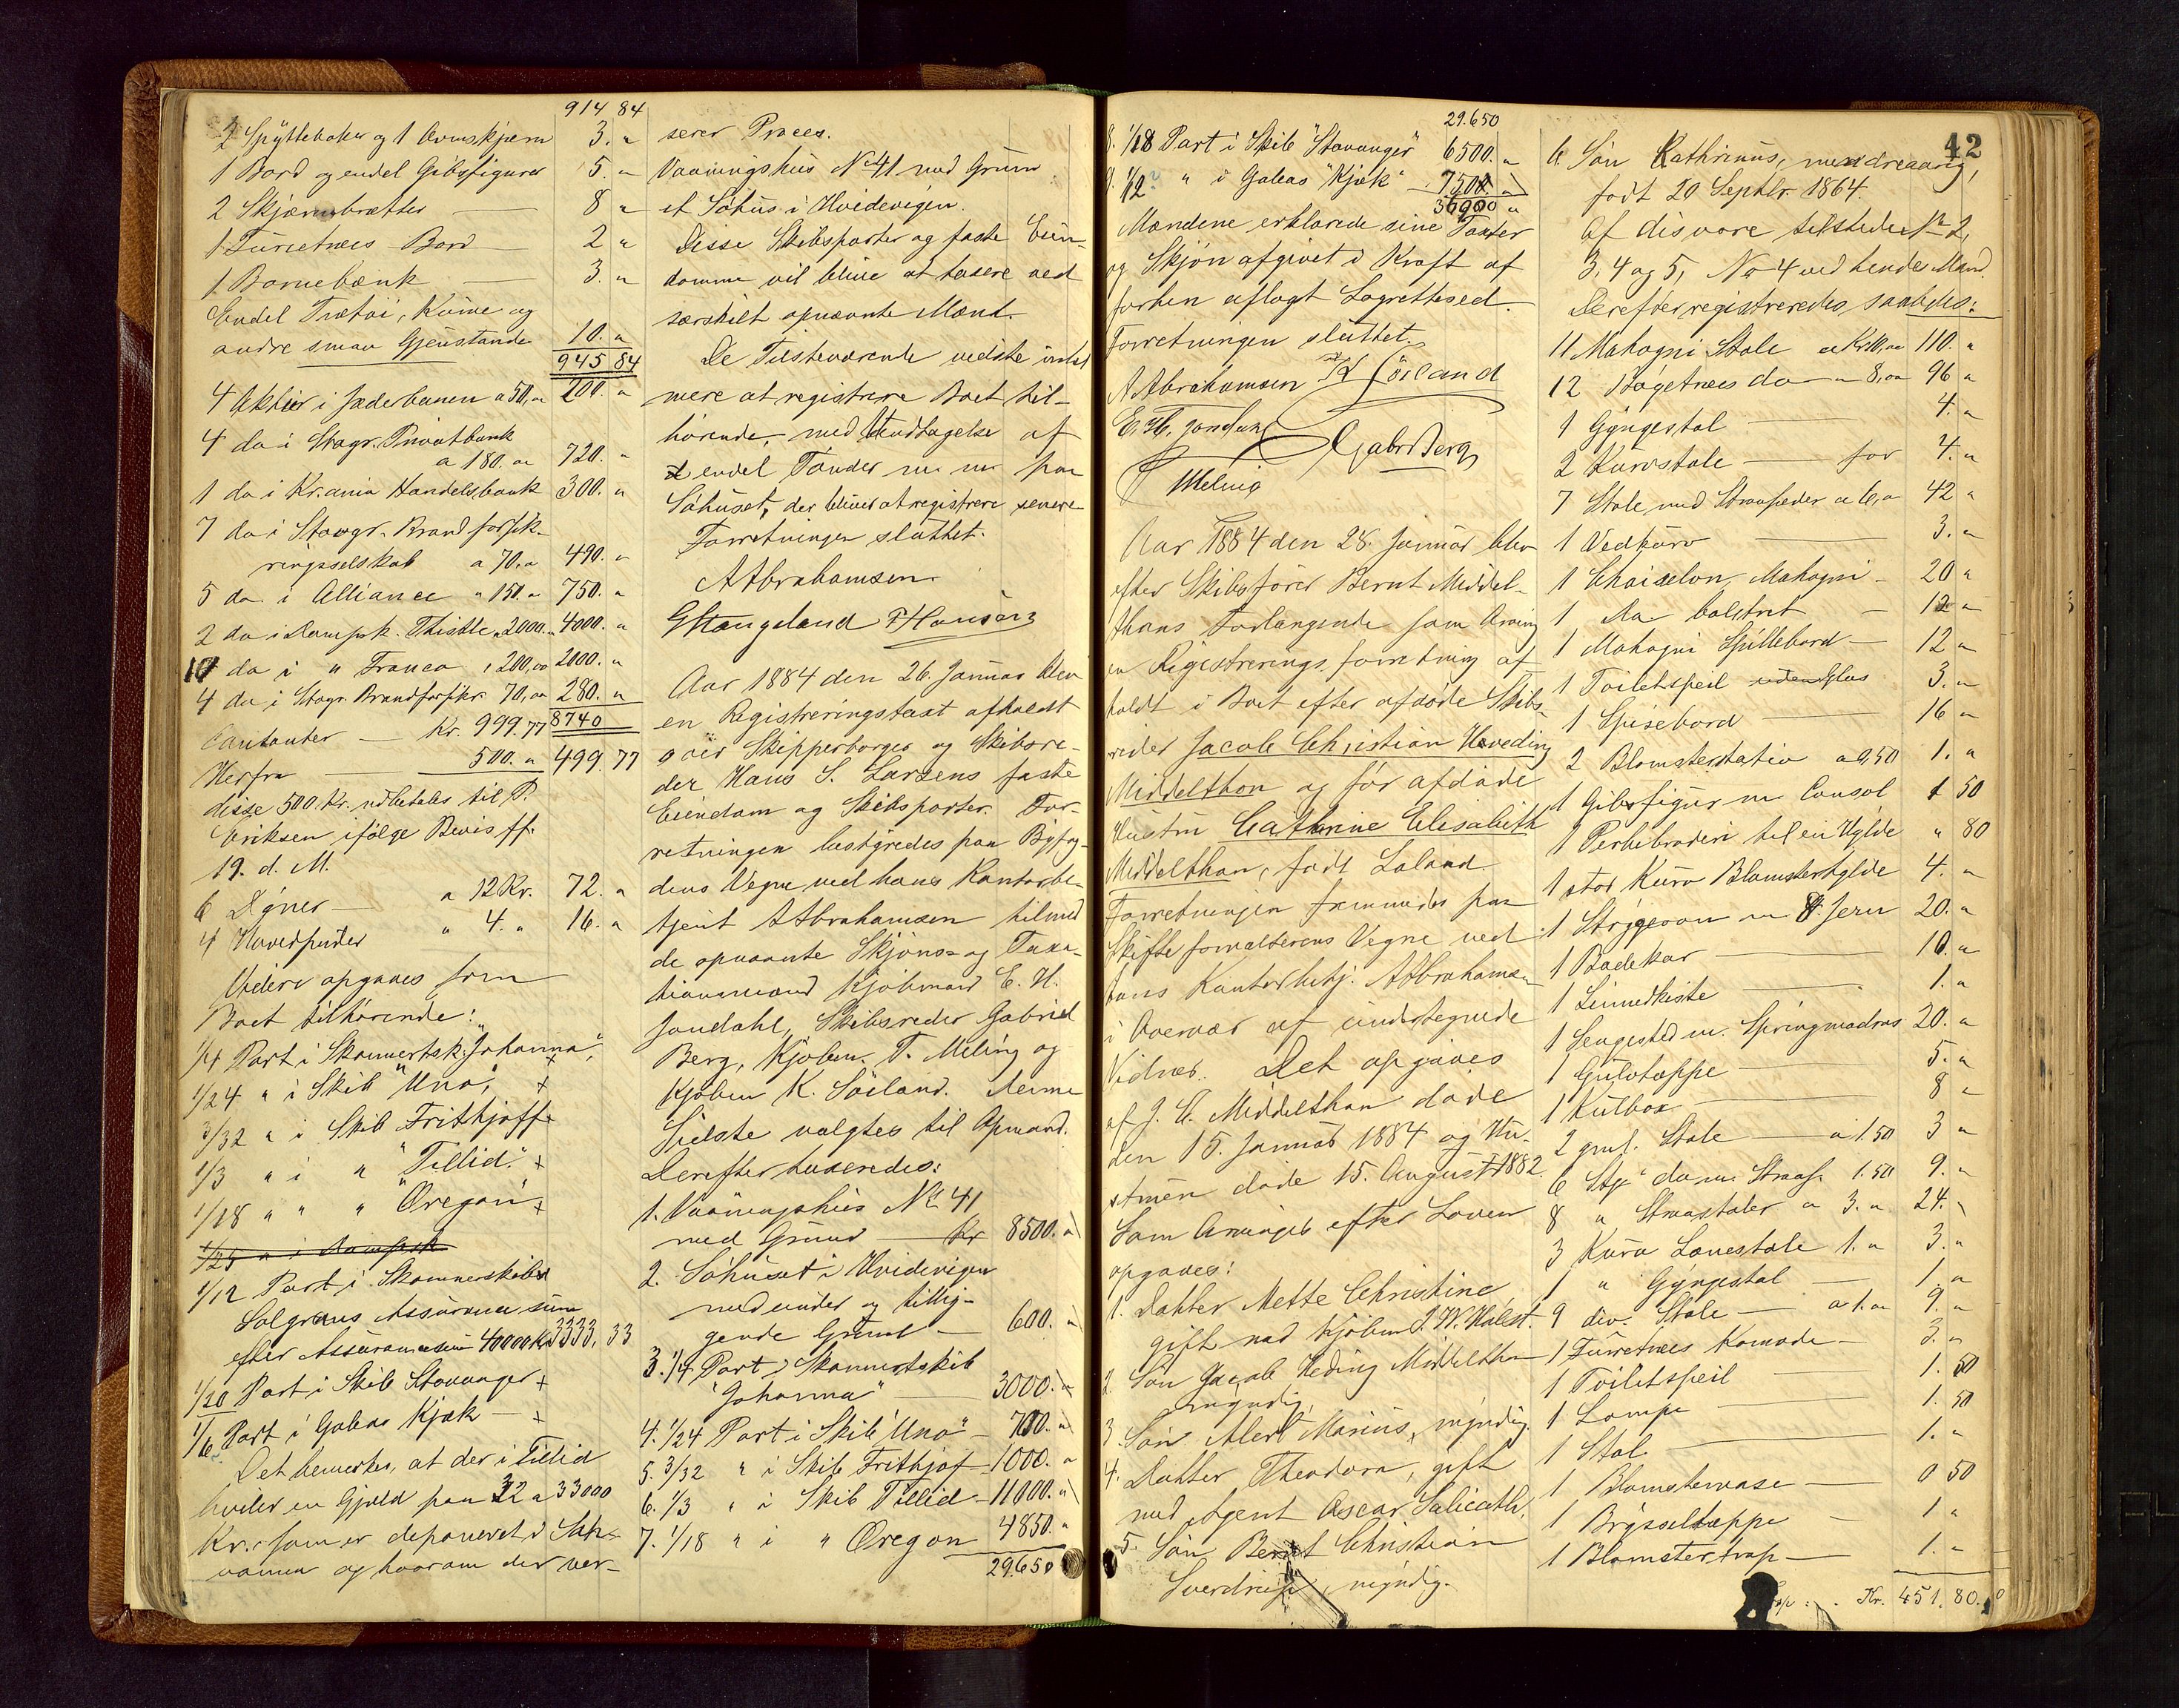 914 84
2 Spyttebaker og 1 Ovnskjærm 3. "
1 Bord og endel Gibsfigurer 5. "
2 Skjærmbrætter 8 "
1 Furretræes Bord 2 "
1 Barnebænk 3. "
Endel Trætøi, Kurve og
andre smaa Gjenstande 10. "
945 84
4 Aktier i Jæderbanen a 50,00 200. "
4 do i Stavgr. Privatbank
a 180.00 720. "
1 do i Kr.ania Handelsbank 300. "
7 do i Stavgr. Brandforsik-
ringsselskab a 70,00 490. "
5 do i Alliance a 150.00 750. "
2 do i Dampsk. Thistle a 2000.00 4000. "
10 do i " Franco a 200,00 2000. "
4 do i Stavgr. Brandforsikr. 70,00 280. "
Contanter Kr. 999.77 8740
Herfra 500. " 499. 77
disse 500 Kr. udbetales til P.
Eriksen ifølge Bevis ff.
19. d. M.
6 Dyner a 12 Kr. 72. "
4 Hovedpuder " 4. " 16. "
Videre opgaves som
Boet tilhørende:
1/4 Part i Skonnertsk. "Johanna",
1/24 " i Skib "Uno", +
3/32 " i Skib Frithjoff +
1/3 " i " "Tillid" +
1/18 " " " "Oregon" +
1/25 " i Dampsk
1/12 Part i Skonnerskibet
Solgrans Assurance sum
efter Assurancesum 40000 Kr 3333, 33
1/20 Part i Skib Stavanger +
1/6 Part i Galeas Kjæk +
Det bemerkes, at der i Tillid
hviler en Gjæld paa 32 a 33000
Kr. som er deponeret i Sah-
vannen og hvorom der ver-
serer Proces.
Vaaningshus No 41 med Grund
et Søhus i Hvidevigen.
Disse Skibsparter og faste Eien-
domme vil blive at taxere ved
særskilt opnævnte Mænd.
De Tilstedeværende vidste intet
mere at registrere Boet til-
hørende, med Undtagelse af
endel Tønder m m paa
Søhuset, der bliver at registrere senere
Forretningen sluttet.
A Abrahamsen
G Stangeland P Hansen
Aar 1884 den 26. Januar blev
en Registreringstaxt afholdt
over Skipperborger og Skibsre-
der Hans S. Larsens faste
Eiendom og Skibsparter. For-
retningen bestyredes paa Byfog-
dens Vegne ved hans Kontorbe-
tjent A Abrahamsen tilmed
de opnævnte Skjøns- og Taxa-
tionsmænd Kjøbmand E. H.
Jondahl, Skibsreder Gabriel
Berg, Kjøbm. T. Meling og
Kjøbm K. Søiland. Denne
Sidste valgtes til Opmand.
Derefter taxeredes:
1. Vaaningshus No 41
med Grund Kr 8500. "
2. Søhuset i Hvidevigen
med under og tillig-
gende Grund 600. "
3. 1/4 Part i Skonnertskib
"Johanna" 3000. "
4. 1/24 Part i Skib "Uno" 700. "
5. 3/32 " i Skib Frithjof 1000. "
6. 1/3 " i Skib Tillid 11000. "
7. 1/18 " i " Oregon 4850. "
29.650
29.650
8. 1/18 Part i Skib "Stavanger" 6500. "
9. 1/2 " i Galeas "Kjæk" 750. "
36900 "
Mændene erklærede sine Taxter
og Skjøn afgivet i Kraft af
forhen aflagt Lagrettesed.
Forretningen sluttet.
A Abrahamsen K Söiland
E. H. Jondahl Gabr. Berg
T Meling
Aar 1884 den 28. Januar blev
efter Skibsfører Bernt Middel-
thons Forlangende som Arving
en Registrerings forretning af
holdt i Boet efter afdøde Skibs-
reder Jacob Christian Hveding
Middelthon og før afdøde
Hustru Cathrine Elisabeth
Middelthon, født Laland.
Forretningen fremmedes paa
Skifteforvalterens Vegne ved
hans Kontorbetj. A Abrahamsen
i Overvær af undertegnede
Vidner. Det opgaves
af J. C. Middelthon døde
den 15. Januar 1884 og Hu-
struen døde 15. August 1882.
Som Arvinger efter Loven
opgaves:
1. Datter Mette Christine,
gift med Kjøbm P. W. Halst.
2. Søn Jacob Heding Middelthon
myndig,
3. Søn Alert Marius, myndig.
4. Datter Theodora, gift
med Agent Oscar Salicath,
5. Søn Bernt Christian
Sverdrup, myndig.
42
6. Søn Kathrinus, mindreaarig,
født 20 Septbr. 1864.
Af disse vare tilstede No 2,
3, 4 og 5, No 4 ved hendes Mand.
Derefter registreredes saaledes:
11 Mahogni Stole a Kr. 10,00 110. "
12 Bøgetræes do a 8,00 96 "
1 Gyngestol 4. "
2 Kurvstole for 4. "
7 Stole med Straasæder a 6,00 42 "
1 Vedkurv 3. "
1 Chaiselon, Mahogni 20 "
1 do bolstret 12 "
1 Mahogni Spillebord 12 "
1 Toiletspeil uden Glas 3. "
1 Spisebord 16 "
2 Blomsterstativ a 0,50 1. "
1 Gibsfigur m Consol 1 50
1 Perlebroderi til en Hylde " 80
1 stor Kurv Blomsterhylde 4. "
1 Strygeovn m 8 Jern 20. "
1 Badekar 10. "
1 Linnedkiste 1. "
1 Sengested m. Springmadras 20. "
1 Gulvtæppe 5. "
1 Kulbox 8 "
2 gml. Stole a 1.50 3 "
6 Stk do m Straas. 1.50 9. "
8 " Straastoler a 3. " 24. "
3 Kurv Lænestole 1. " 3. "
1 " Gyngestol 1. "
9 div. Stole a 1.00 9. "
1 Furretræes Komode 3. "
1 Toiletspeil 1. 50
1 Lampe 1. 50
1 Stol 1. "
1 Blomstervase 0 50
1 Brysseltæppe 1 "
1 Blomstertrap 1. "
Kr. 451. 80.